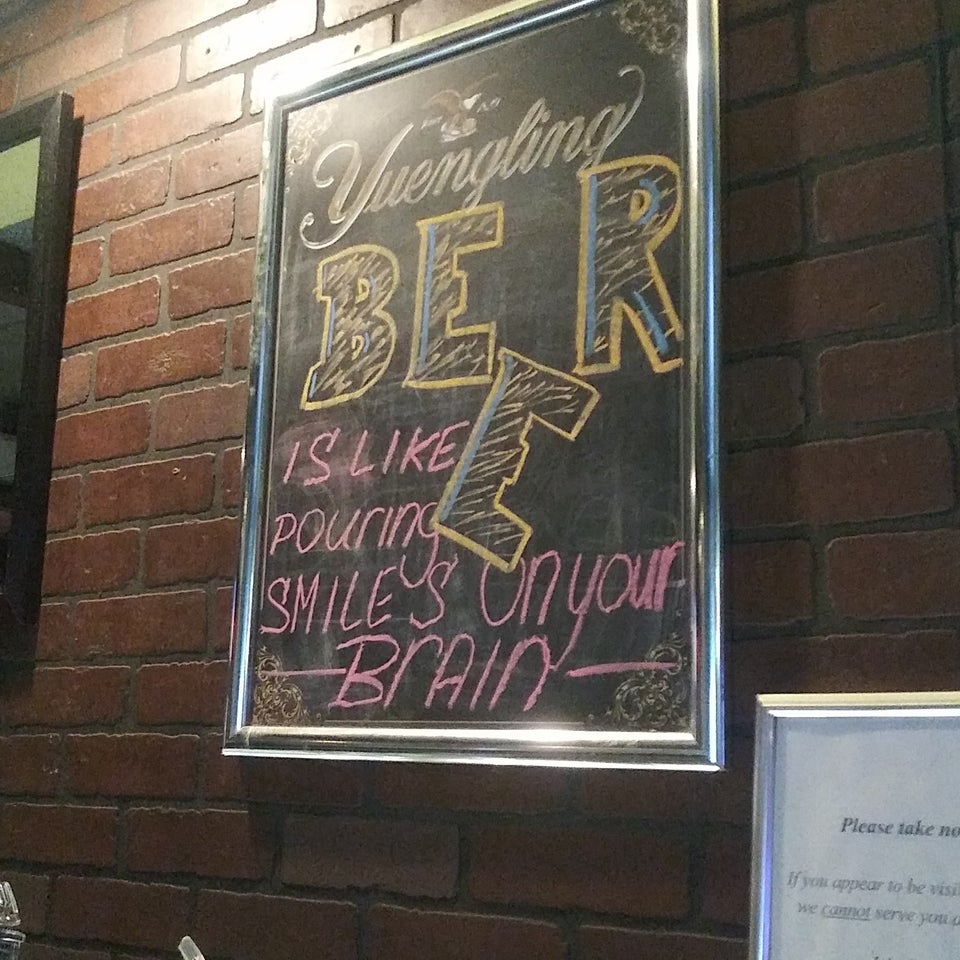 Yuengling
BEER
IS LIKE
POURING
SMILE'S ON YOUR
BRAIN
Please take
If you appear to be
we cannot serve you